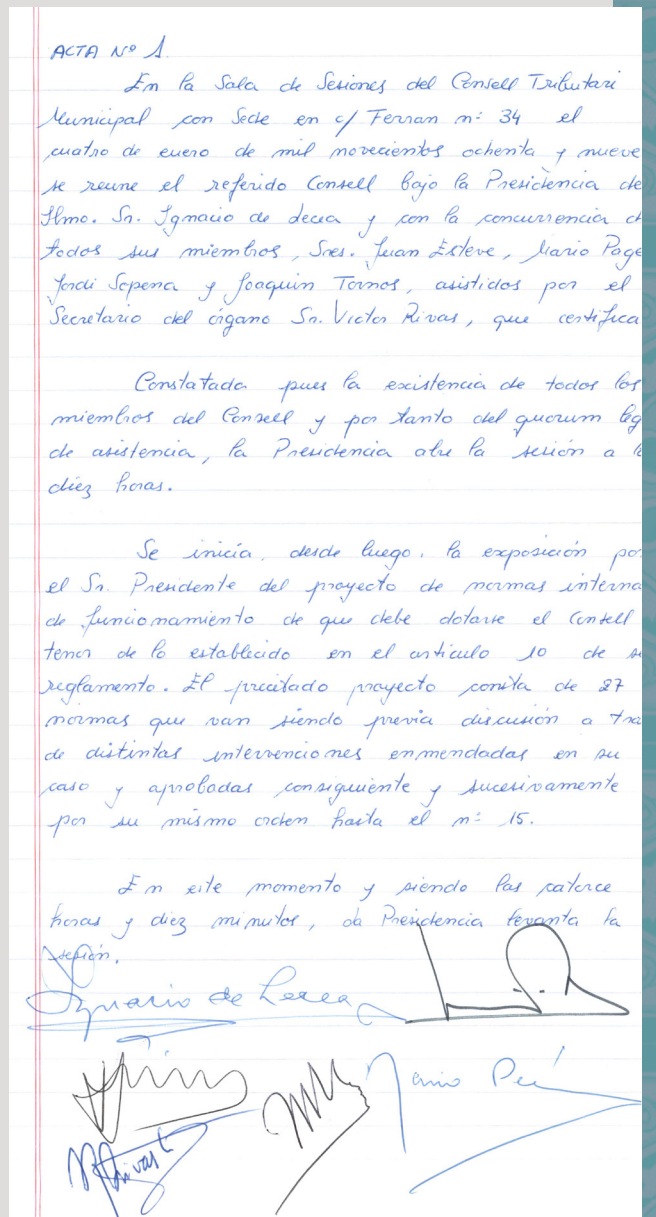 ACTA Nº 1.
En la Sala de Sesiones del Consell Tributari
Municipal con Sede en c/ Ferran nº 34 el
cuatro de enero de mil novecientos ochenta y nueve
se reune el referido Consell bajo la Presidencia de
Ilmo. Sr. Ignacio de Lecea y con la concurrencia d
todos sus miembros, Sres. Juan Esteve, Mario Page
Jordi Sopena y Joaquin Tornos, asistidos por el
Secretario del órgano Sr. Victor Rivas, que certifica
Constatada pues la existencia de todos los
miembros del Consell y por tanto del quorum leg
de asistencia, la Presidencia abre la sesión a l
diez horas.
Se inicia, desde luego, la exposición po
el Sr. Presidente del proyecto de normas interna
de funcionamiento de que debe dotarse el Consell
tenor de lo establecido en el artículo 10 de s
reglamento. El precitado proyecto consta de 27
normas que van siendo previa discusión a tra
de distintas intervenciones enmendadas en su
caso y aprobadas consiguiente y sucesivamente
por su mismo orden hasta el nº 15.
En este momento y siendo las catorce
horas y diez minutos, la Presidencia levanta la
sesión.
Ignacio de Lecea
Mario
Rivas